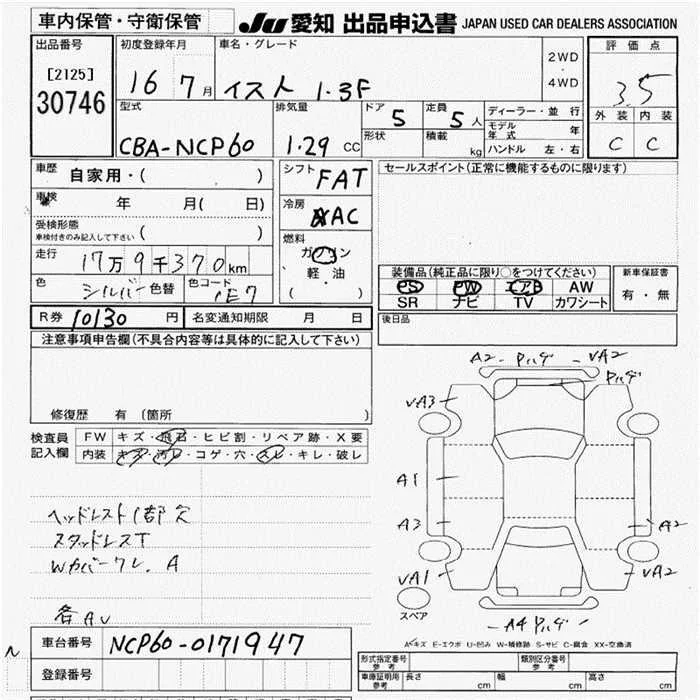 車内保管・守衛保管
JU 愛知 出品申込書 JAPAN USED CAR DEALERS ASSOCIATION
出品番号
[2125]
30746
初度登録年月
16 7月
車名・グレード
イスト 1.3F
2WD
・
4WD
評価点
3.5
外装 内装
C C
型式
CBA-NCP60
排気量
1.29 CC
ドア 5
定員 5人
形状
積載 kg
ディーラー・並行
モデル年式 年
ハンドル 左・右
車歴
自家用・( )
車検 年 月( 日)
受検形態
車検付きのみ記入して下さい ( )
走行
17万9千370km
色
シルバー 色替
色コード
1E7
シフト FAT
冷房 AC
燃料
ガソリン
軽・油
( )
セールスポイント(正常に機能するものに限ります)
装備品(純正品に限り○をつけてください)
PS PW エアB AW
SR ナビ TV カワシート
新車保証書
有・無
R券 10130 円
名変通知期限 月 日
後日品
注意事項申告欄(不具合内容等は具体的に記入して下さい)
修復歴 有 (箇所
検査員
記入欄
FW キズ・飛石・ヒビ割・リペア跡・X要
内装 キズ・汚レ・コゲ・穴・スレ・キレ・破レ
ヘッドレスト1部欠
スタッドレスT
Wカバーワレ. A
各AU
A2 - ハゲ - VA2
ハゲ
VA3
A1
A3
VA1
A2
VA2
スペア
A4 ハゲ
A-キズ E-エクボ U-凹み W-補修跡 S-サビ C-腐食 XX-交換済
N
車台番号 NCP60-0171947
登録番号
形式指定番号
参考
類別区分番号
参考
車庫証明用
参考
長さ cm 幅 cm 高さ cm